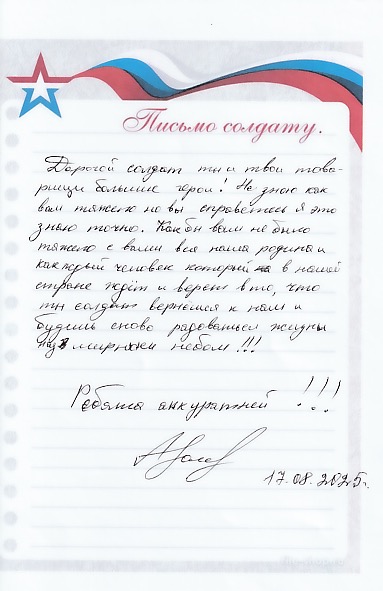 Письмо солдату.
Дорогой солдат ты и твои това-
рищи большие герои! Не знаю как
вам тяжело но вы справетесь я это
знаю точно. Как бы вам не было
тяжело с вами вся наша родина и
каждый человек который в нашей
стране ждёт и верет в то, что
ты солдат вернешся к нам и
будешь снова радоваться жизни
под мирным небом!!!
Ребята аккуратней!!!
17.08.2025г.